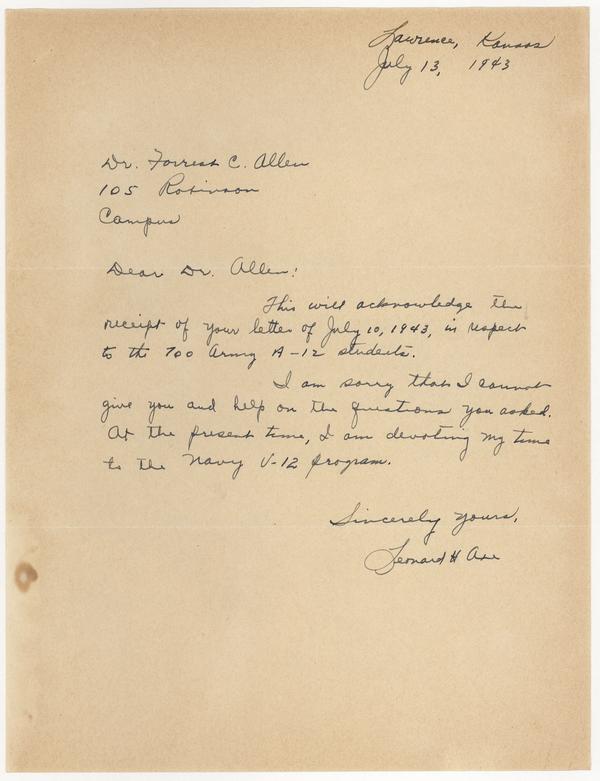 Lawrence, Kansas
July 13, 1943
Dr. Forrest C. Allen
105 Robinson
Campus
Dear Dr. Allen:
This will acknowledge the
receipt of your letter of July 10, 1943, in respect
to the 700 Army A-12 students.
I am sorry that I cannot
give you and help on the questions you asked.
At the present time, I am devoting my time
to the Navy V-12 program.
Sincerely yours,
Leonard H Axe